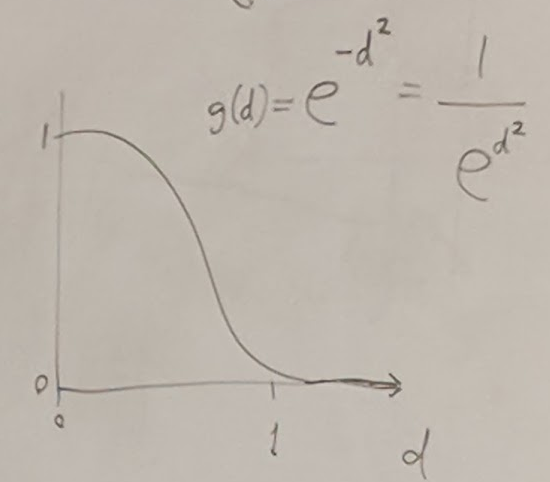 g(d) = e^{-d^2} = 1 / e^{d^2}
1
0
0
1
d